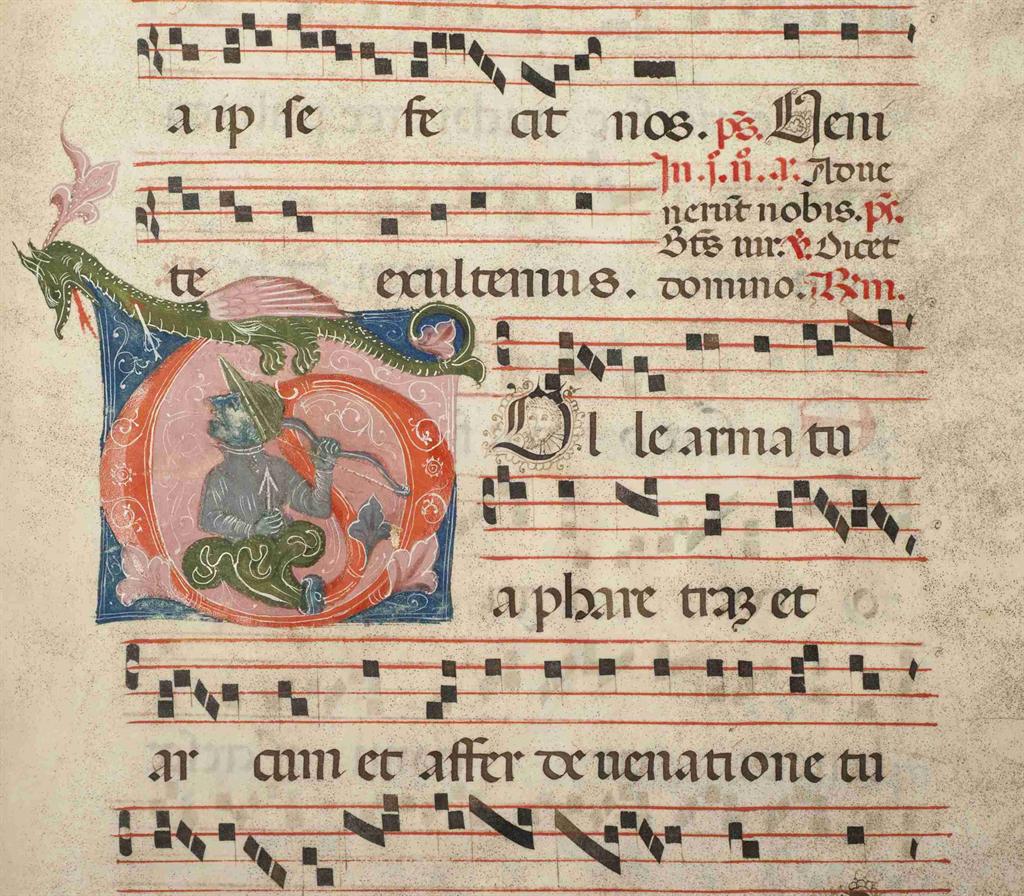 a ip se fe cit nos. ps̄. Ueni
In .j. n̊. a: Adue
nerūt nobis. ps̄.
Bt̄s uir: ℣ Dicet
te exultemus. domino. Rm.
TOl le arma tu
a phare traꝫ et
ar cum et affer de uenatione tu